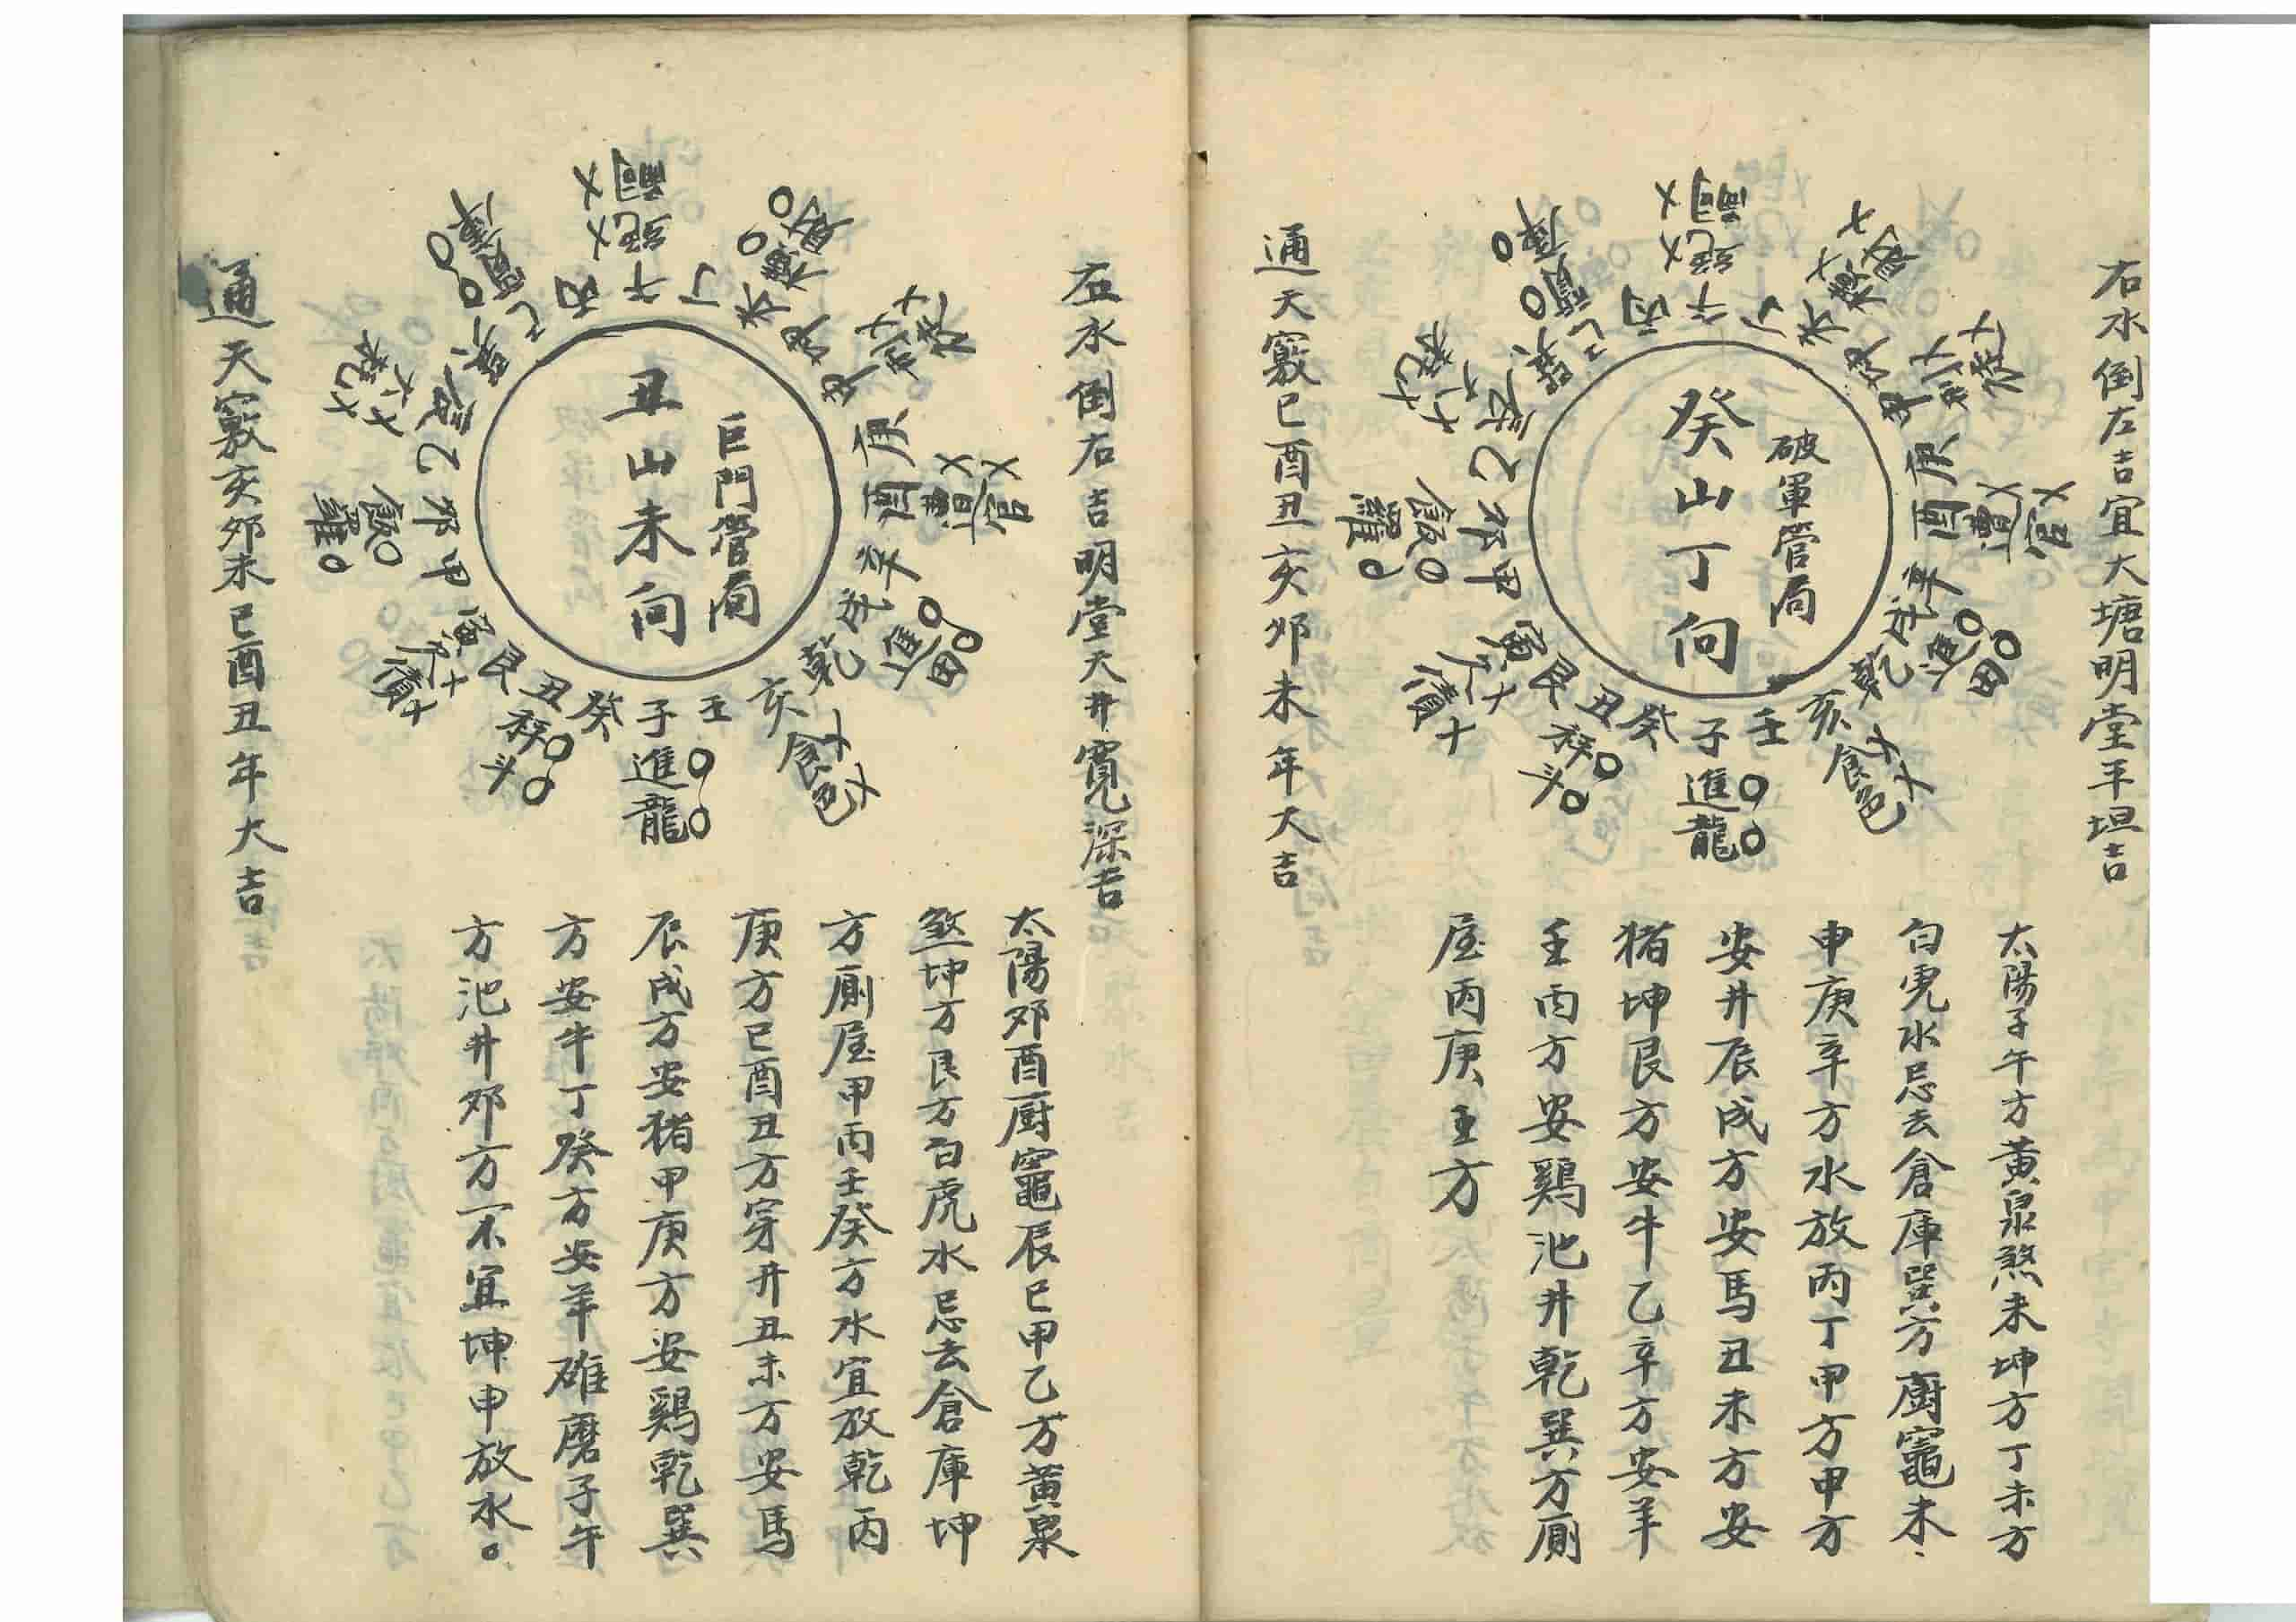 右水倒左吉宜大塘明堂平坦吉
破軍管局
癸山丁向
子
癸
丑
艮
寅
甲
卯
乙
辰
巽
巳
丙
午
丁
未
坤
申
庚
酉
辛
戌
乾
亥
壬
進龍
通天竅巳酉丑亥卯未年大吉
太陽子午方黃泉煞未坤方丁未方
白虎水忌去倉庫巽方廚竈未
申庚辛方水放丙丁甲方甲方
安井辰戌方安馬丑未方安
猪坤艮方安牛乙辛方安羊
壬丙方安鷄池井乾巽方厠
屋丙庚壬方
左水倒右吉明堂天井寬深吉
巨門管局
丑山未向
子
癸
丑
艮
寅
甲
卯
乙
辰
巽
巳
丙
午
丁
未
坤
申
庚
酉
辛
戌
乾
亥
壬
進龍
通天竅亥卯未巳酉丑年大吉
太陽卯酉厨竈辰巳甲乙方黃泉
煞坤方艮方白虎水忌去倉庫坤
方厠屋甲丙壬癸方水宜放乾丙
庚方巳酉丑方穿井丑未方安馬
辰戌方安猪甲庚方安鷄乾巽
方安牛丁癸方安羊碓磨子午
方池井卯方不宜坤申放水。